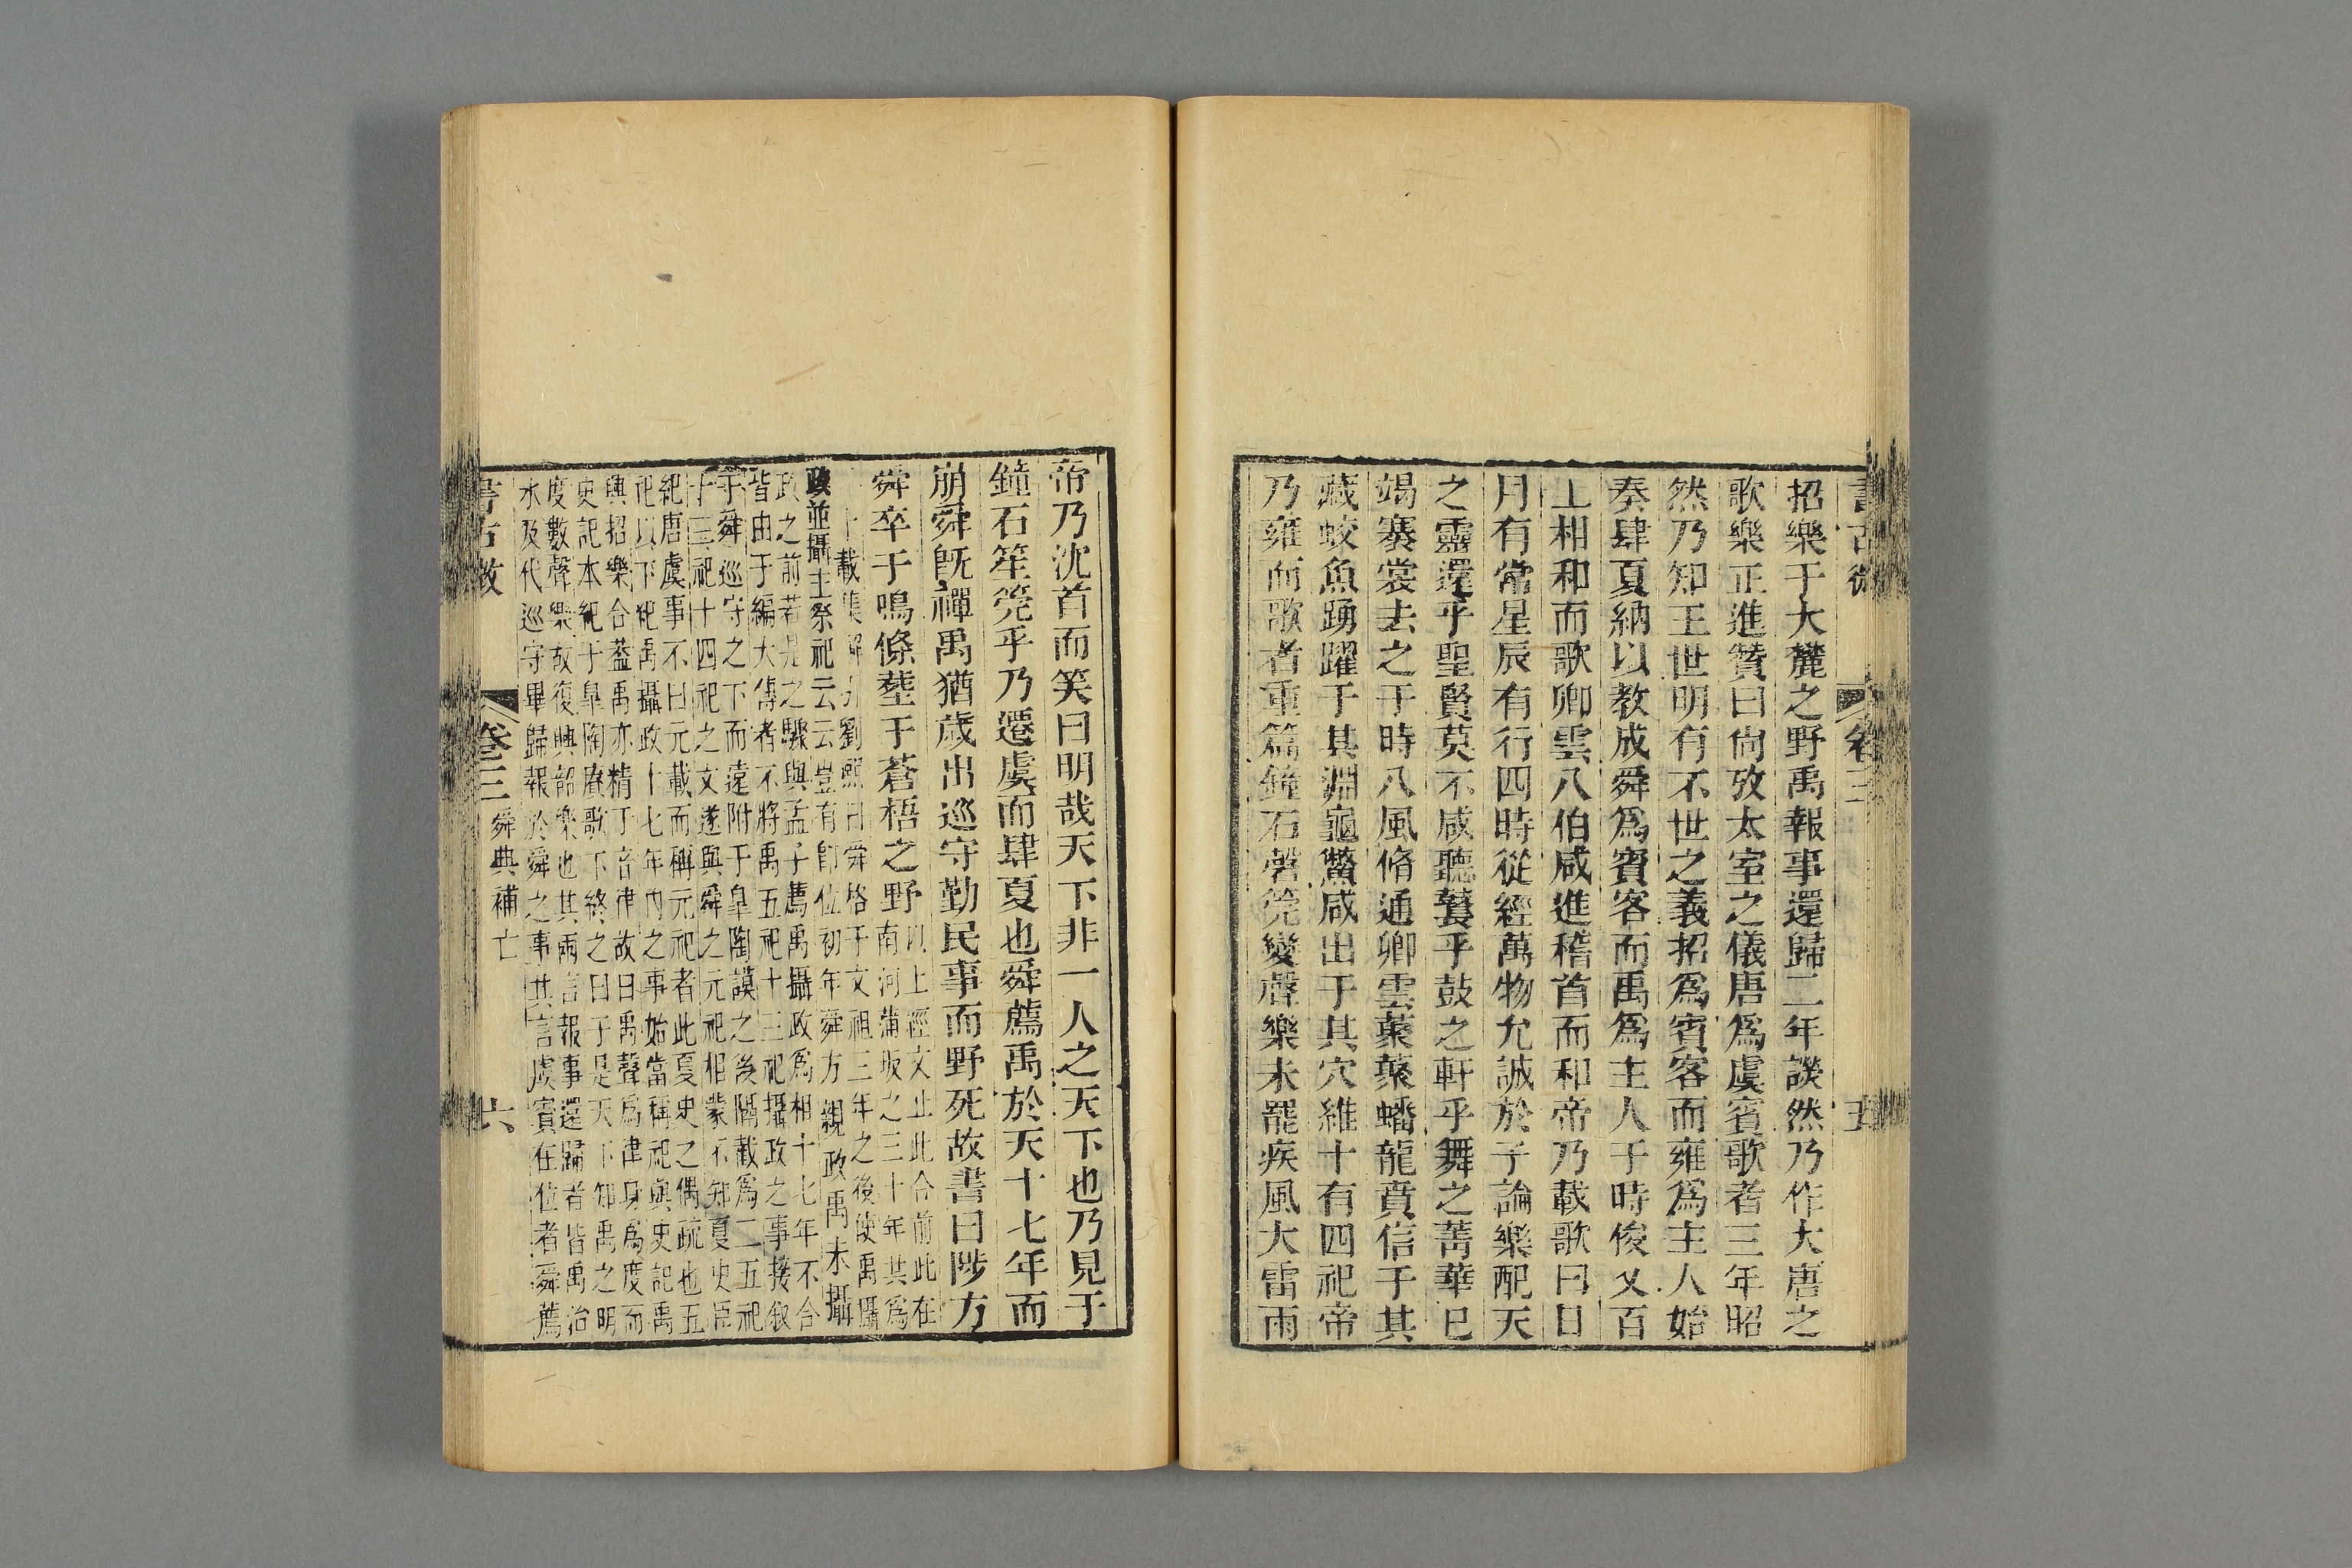 書古微 卷三 五
招樂于大麓之野禹報事還歸二年談然乃作大唐之
歌樂正進贊曰尙攷太室之儀唐爲虞賓歌者三年昭
然乃知王世明有不世之義招爲賓客而雍爲主人始
奏肆夏納以教成舜爲賓客而禹爲主人于時俊乂百
工相和而歌卿雲八伯咸進稽首而和帝乃載歌曰日
月有常星辰有行四時從經萬物允誠於予論樂配天
之靈還乎聖賢莫不咸聽鼚乎鼓之軒乎舞之菁華已
竭褰裳去之于時八風脩通卿雲蘂蘂蟠龍賁信于其
藏蛟魚踴躍于其淵龜鱉咸出于其穴維十有四祀帝
乃雍而歌者重篇鐘石磬筦變聲樂未罷疾風大雷雨
帝乃沈首而笑曰明哉天下非一人之天下也乃見于
鐘石笙筦乎乃遷虞而肆夏也舜薦禹於天十七年而
崩舜旣禪禹猶歲出巡守勤民事而野死故書曰陟方
舜卒于鳴條塟于蒼梧之野
以上經文止此合前此在
南河蒲坂之三十年其爲
載集解 劉熙曰舜格于文祖三年之後使禹攝
政並攝主祭祀云云豈有卽位初年舜方親政禹未攝
政之前若是之驟與孟子薦禹攝政爲相十七年不合
皆由于編大傳者不將禹五祀十三祀攝政之事接叙
于舜巡守之下而遠附于皋陶謨之後隔截爲二五祀
十三祀十四祀之文遂與舜之元祀相蒙不知夏史臣
紀唐虞事不曰元載而稱元祀者此夏史之偶疏也五
祀以下紀禹攝政十七年內之事始當稱祀與史記禹
興招樂合葢禹亦精于音律故曰禹聲爲律身爲度而
史記本紀于皋陶賡歌下終之曰于是天下知禹之明
度數聲樂故復興韶樂也其兩言報事還歸者皆禹治
水及代巡守畢歸報於舜之事其言虞賓在位者舜薦
書古微 卷三 舜典補亡 六